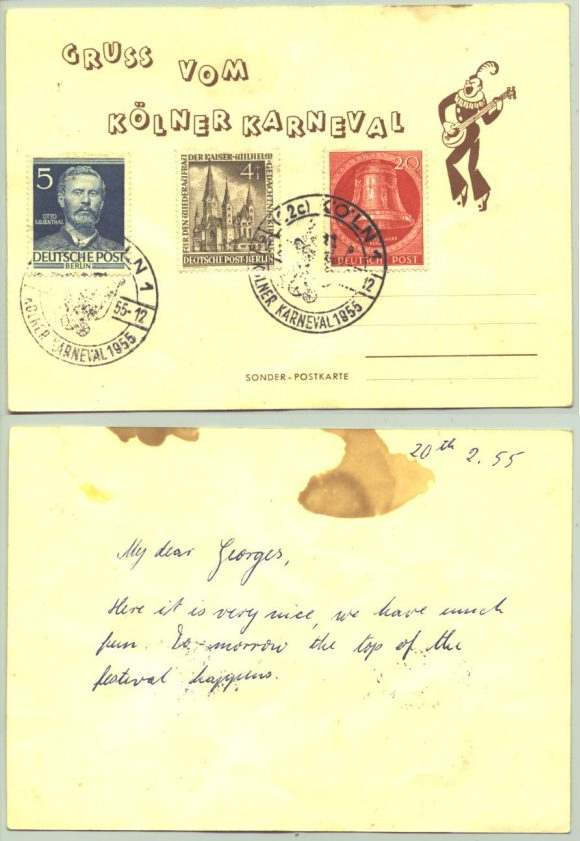 GRUSS VOM
KÖLNER KARNEVAL
5
OTTO LILIENTHAL
DEUTSCHE POST
BERLIN
FÜR DEN WIEDERAUFBAU DER KAISER-WILHELM-GEDÄCHTNISKIRCHE
4
DEUTSCHE POST BERLIN
20
DEUTSCHE POST
KÖLN 1
55-12
KÖLNER KARNEVAL 1955
(2c) KÖLN 1
12
KÖLNER KARNEVAL 1955
SONDER-POSTKARTE
20th 2. 55
My dear Georges,
Here it is very nice, we have much
fun. To-morrow the top of the
festival happens.